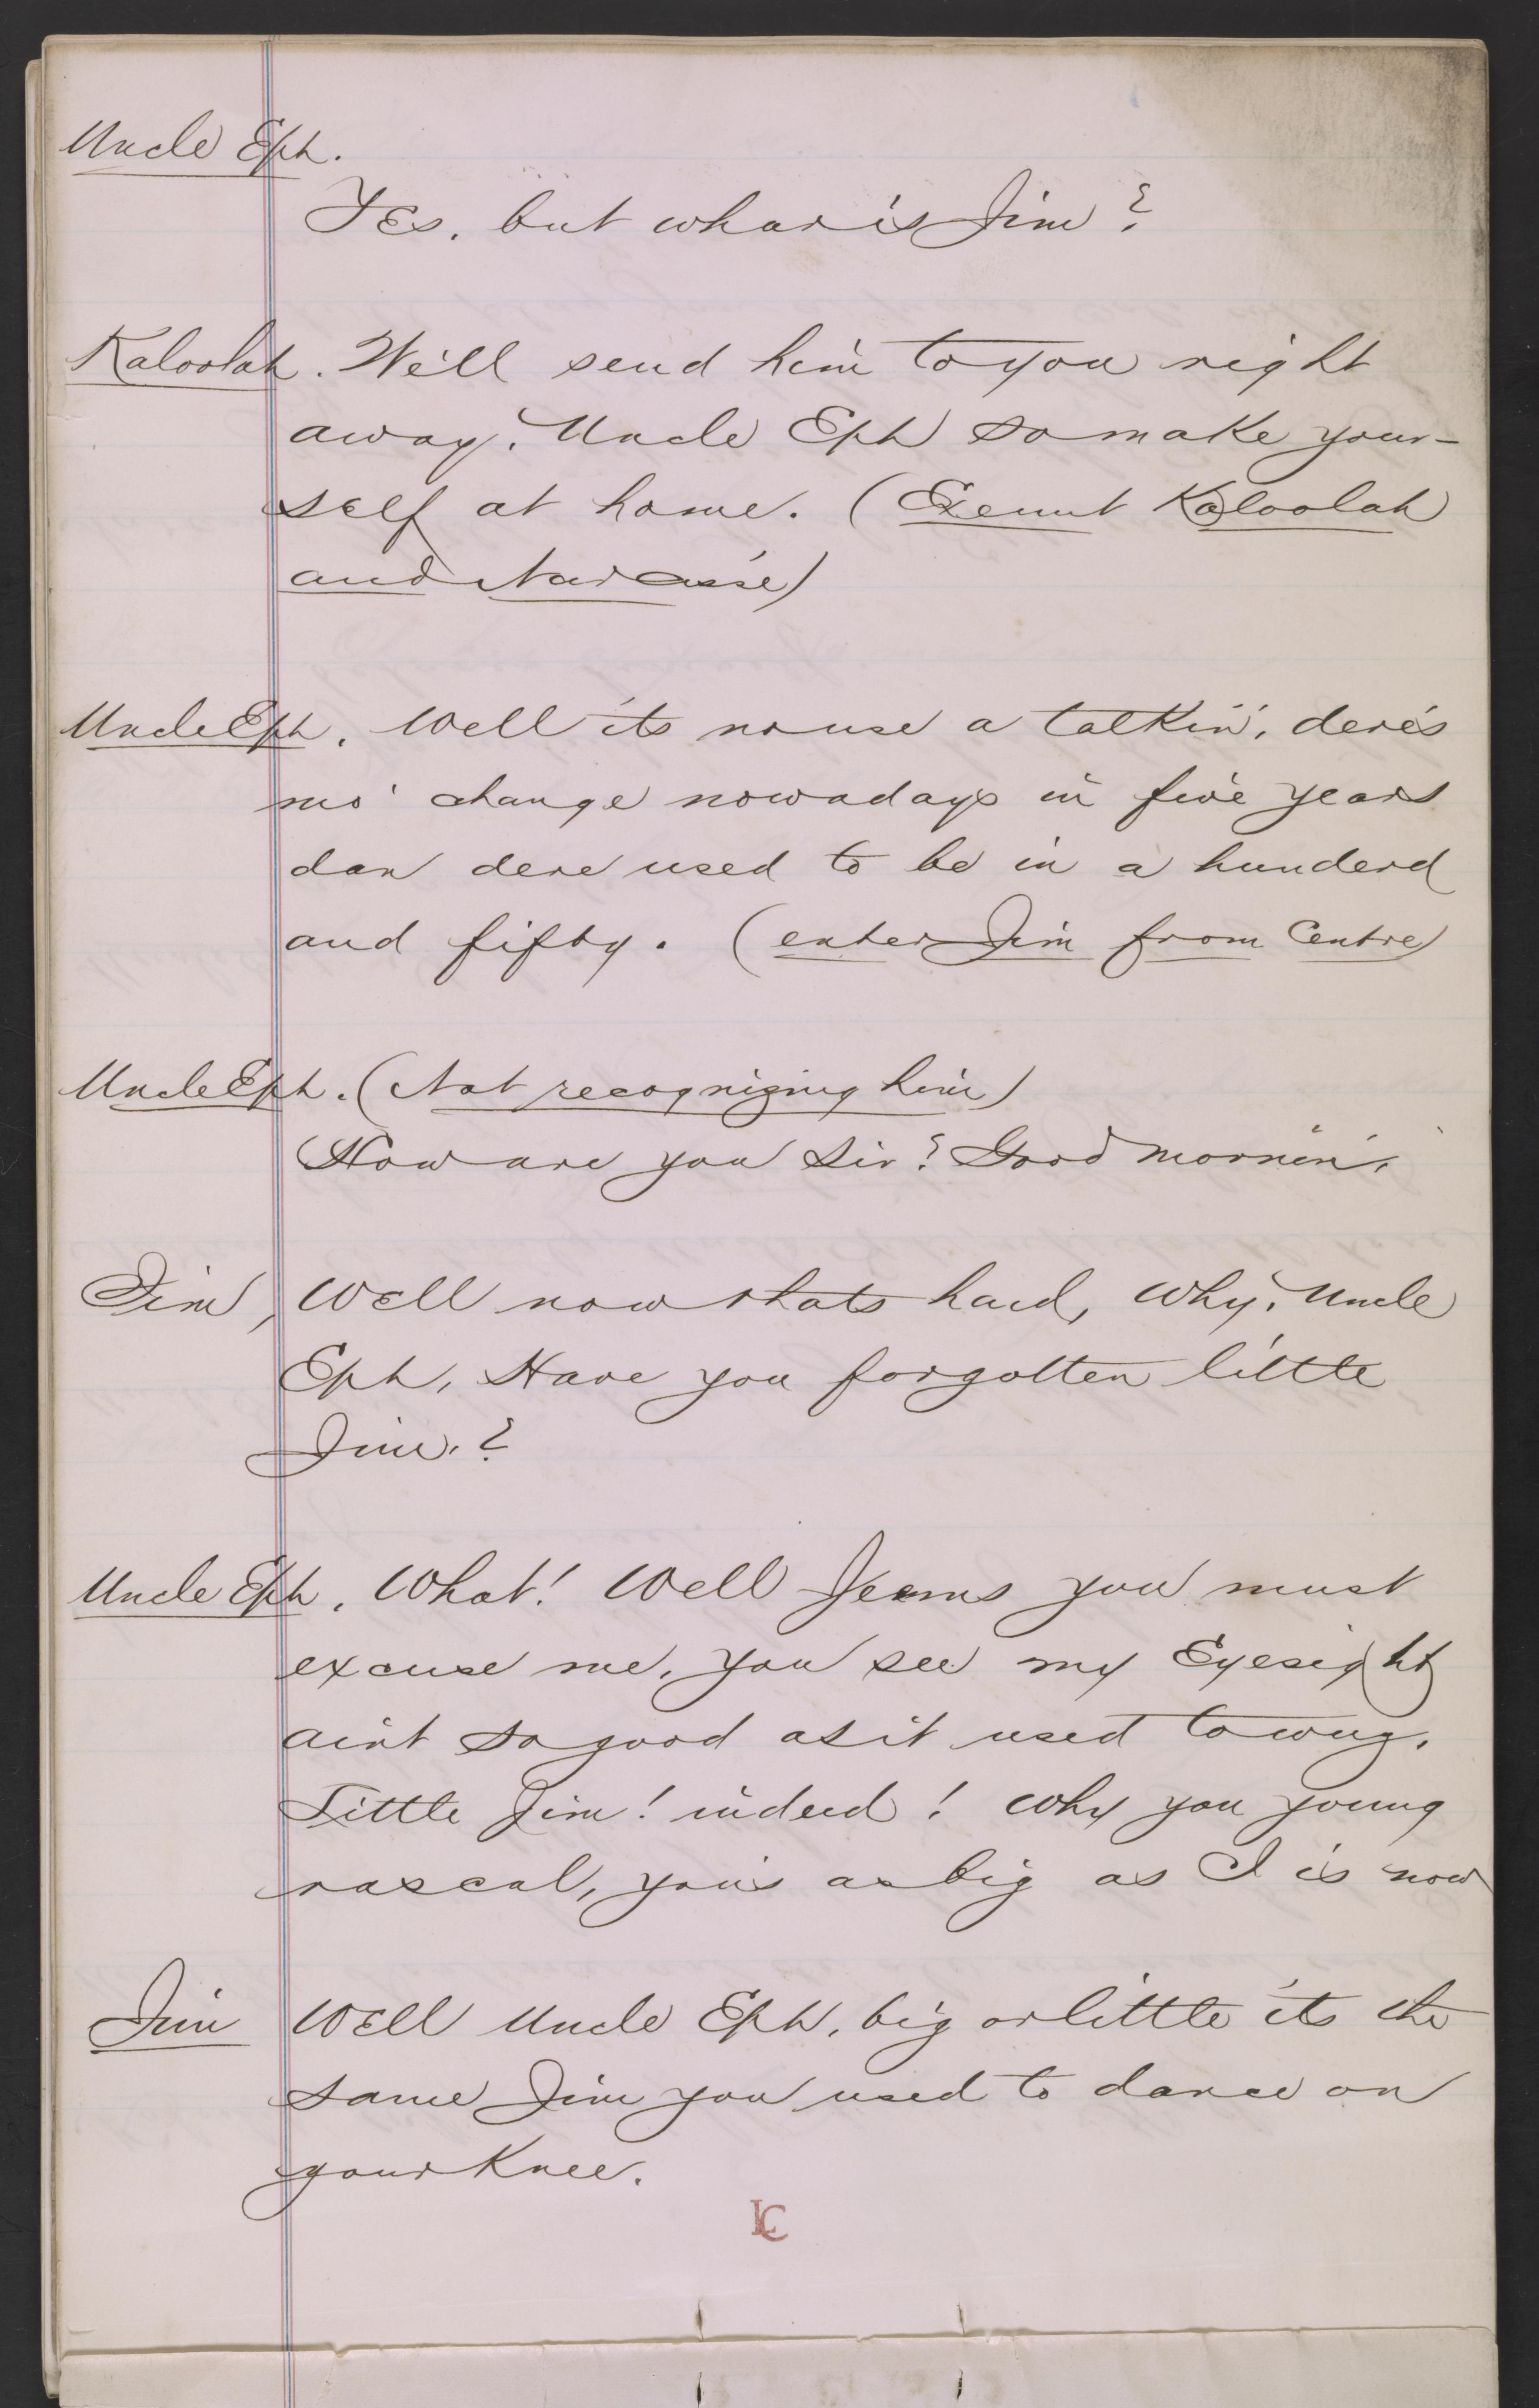 Uncle Eph.
Yes, but whar is Jim?
Kaloolah. We'll send him to you right
away. Uncle Eph so make your-
self at home. (Exeunt Kaloolah
and Narcisse)
Uncle Eph. Well its no use a talkin', dere's
mo' change nowadays in five years
dan dere used to be in a hunderd
and fifty. (enter Jim from Centre)
Uncle Eph. (Not recognizing him)
How are you Sir? Good mornin'.
Jim, Well now thats hard, Why, Uncle
Eph, Have you forgotten little
Jim.?
Uncle Eph. What! Well Jeems you must
excuse me, you see my Eyesight
aint so good as it used to wuz.
Little Jim! indeed! Why you young
rascal, you's as big as I is now
Jim Well Uncle Eph, big or little its the
same Jim you used to dance on
your Knee.
LC